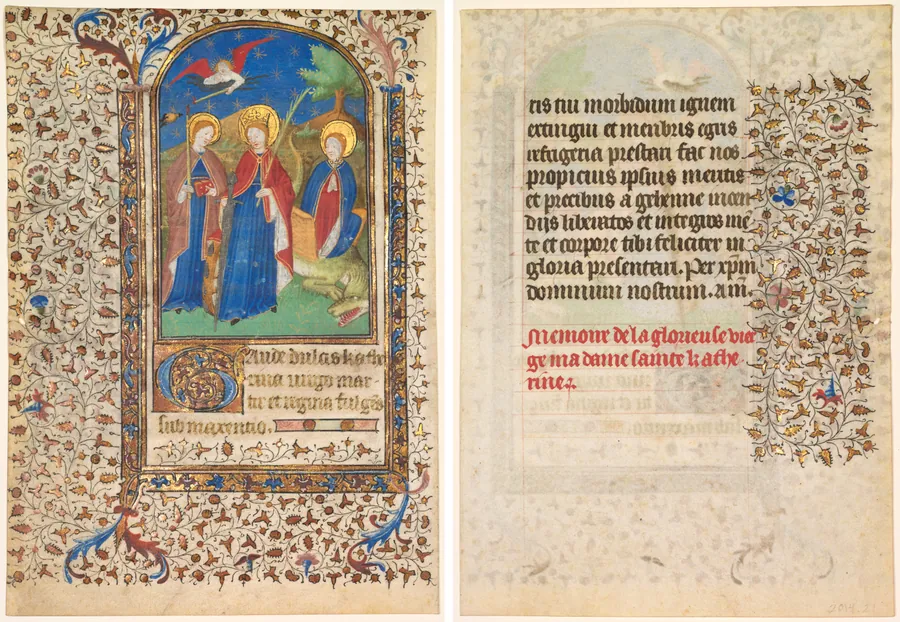 Gaude dulcis kathe
rina virgo mar-
tir et regina fulgens
sub maxentio.
tis tui morbidum ignem
extingui et membris egris
refrigeria prestari fac nos
propicius ipsius meritis
et precibus a gehenne incen
dijs liberatos et integros me
te et corpore tibi feliciter in
gloria presentari. Per xp̄m
dominum nostrum. Am.
Memoire de la glorieuse vier
ge ma dame sainte kathe
rine